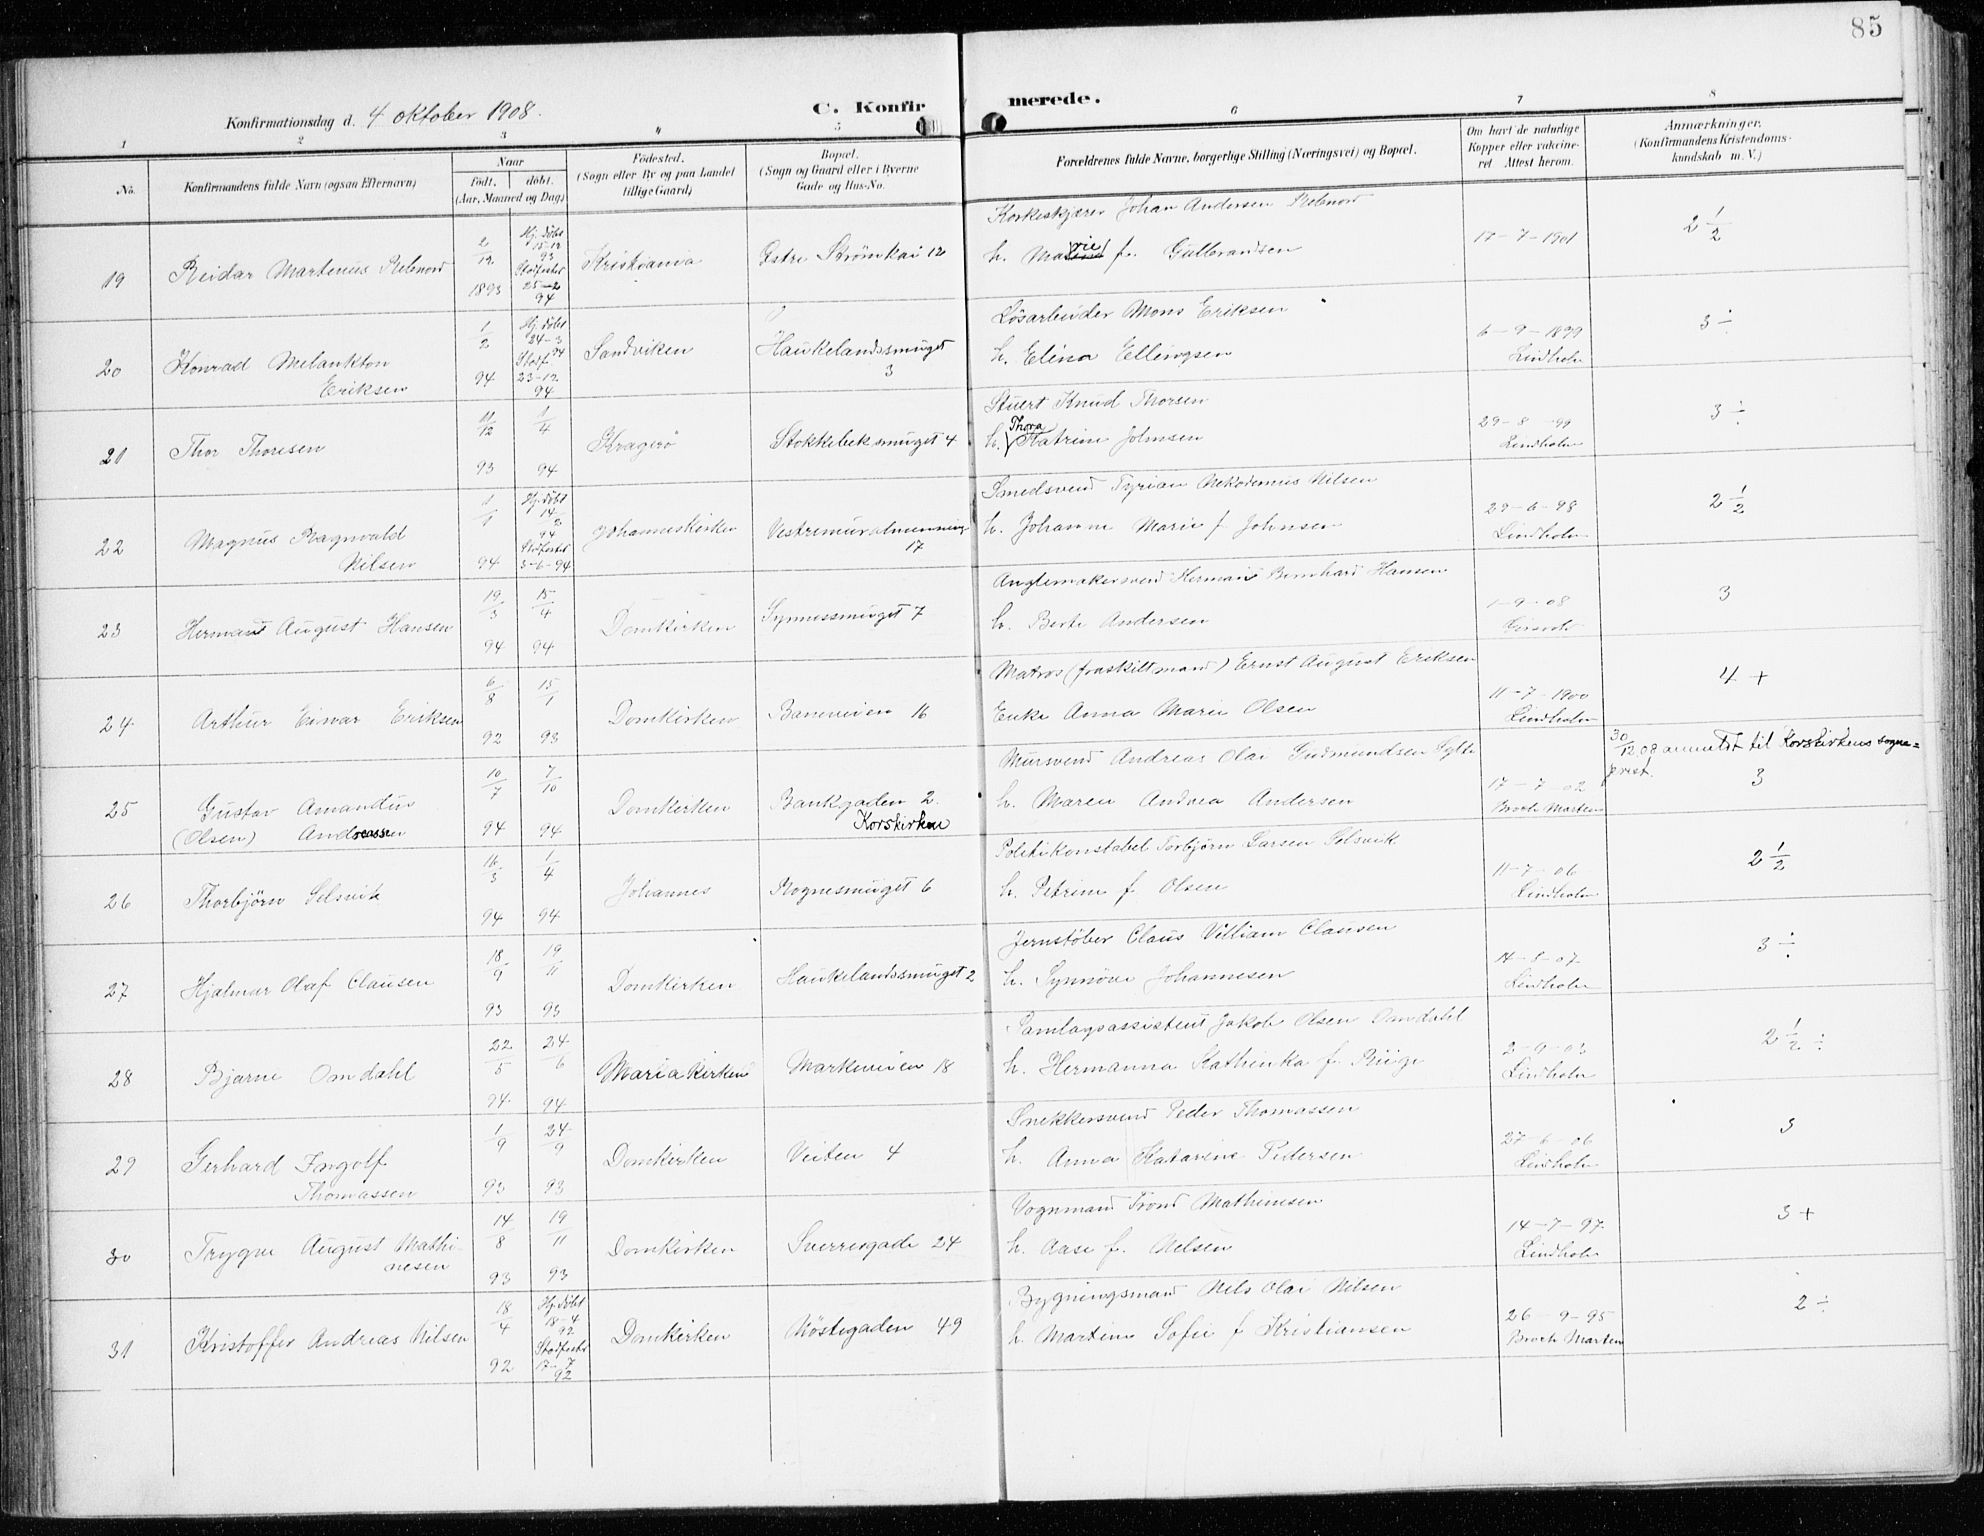 85
Konfirmationsdag d. 4 oktober 1908.
C. Konfirmerede.
1 2 3 " 5 6 7 8
No.
Konfirmandens fulde Navn (ogsaa Efternavn)
Naar
födt. döbt.
(Aar, Maaned og Dag)
Födested.
(Sogn eller By og paa Landet
tillige Gaard)
Bopæl.
(Sogn og Gaard eller i Byerne
Gade og Hus-No.
Forældrenes fulde Navne, borgerlige Stilling (Næringsvei) og Bopæl.
Om havt de naturlige
Kopper eller vaccine-
ret. Attest herom.
Anmærkninger.
(Konfirmandens Kristendoms-
kundskab m. V.)
19 Reidar Martenus Rebnord
2/12 1893
Hj. döbt 15-12 93 Stadfestet 25-2 94
Kristiania
Östre Strömkai 12
Korkeskjærer Johan Andersen Rebnord
h. Marie f. Gulbrandsen
17-7-1901
2 1/2
20 Konrad Melankton
Eriksen
1/2 94
Hj. döbt 24-3 94 Stadf 23-12 94
Sandviken
Haukelandssmuget
3
Lösarbeider Mons Eriksen
h. Elina Ellingsen
6-9-1899
Lindholm
3 ÷
21 Thor Thoresen
11/12 93
1/4 94
Kragerö
Stokkebeksmuget 4
Stuert Knud Thorsen
h. Thora Katrine Johnsen
29-8-99
Lindholm
3 ÷
22 Magnus Ragnvald
Nilsen
1/1 94
Hj. döbt 14/2 94 Stadfestet 3-6-94
Johanneskirken
Vestremuralmenning
17
Smedsvend Tyrian Nekodemus Nilsen
h. Johanne Marie f. Johnsen
29-6-98
Lindholm
2 1/2
23 Herman August Hansen
19/3 94
15/4 94
Domkirken
Synnessmuget 7
Herman Bernhard Hansen
h. Berte Andersen
1-9-08
3
24 Arthur Einar Eriksen
6/8 92
15/1 93
Domkirken
Baneveien 16
Matros (fraskilt mand) Ernst August Eriksen
Enke Anna Marie Olsen
11-7-1900
Lindholm
4 +
25 Gustav Amandus
(Olsen) Andreassen
10/7 94
7/10 94
Domkirken
Bankgaden 2.
Korskirken
Mursvend Andreas Olai Gudmundsen Sylte
h. Maren Andrea Andersen
17-7-02
Broch Martens
30/12 08 anmeldt til Korskirkens sogne=
prest.
3
26 Thorbjörn Solsvik
16/3 94
1/4 94
Johannes
Rognesmuget 6
Politikonstabel Torbjörn Larsen Solsvik
h. Petrine f. Olsen
11-7-06
Lindholm
2 1/2
27 Hjalmar Olaf Clausen
18/9 93
19/11 93
Domkirken
Haukelandssmuget 2
Jernstöber Claus Villiam Clausen
h. Synnöve Johannesen
14-8-07
Lindholm
3 ÷
28 Bjarne Omdahl
22/5 94
24/6 94
Mariakirken
Markeveien 18
Samlagsassistent Jakob Olsen Omdahl
h. Hermanna Kathinka f. Riige
2-9-03
Lindholm
2 1/2 ÷
29 Gerhard Ingolf
Thomassen
1/9 93
24/9 93
Domkirken
Veiten 4
Snekkersvend Peder Thomassen
h. Anna Katarine Pedersen
27-6-06
Lindholm
3
30 Trygve August Mathi-
nesen
14/8 93
19/11 93
Domkirken
Sverresgade 24
Vognmand Trond Mathinesen
h. Aase f. Nelsen
14-7-97.
Lindholm
3 +
31 Kristoffer Andreas Nilsen
18/4 92
Hj. döbt 18-4 92 Stadfestet 17-7 92
Domkirken
Nöstegaden 49
Bygningsmand Nils Olai Nilsen
h. Martine Sofie f. Kristiansen
26-9-95
Broch Martens
2 ÷